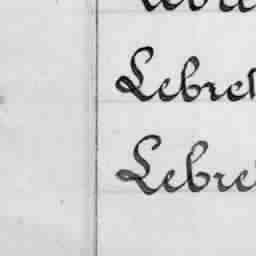 Lebret
Lebre